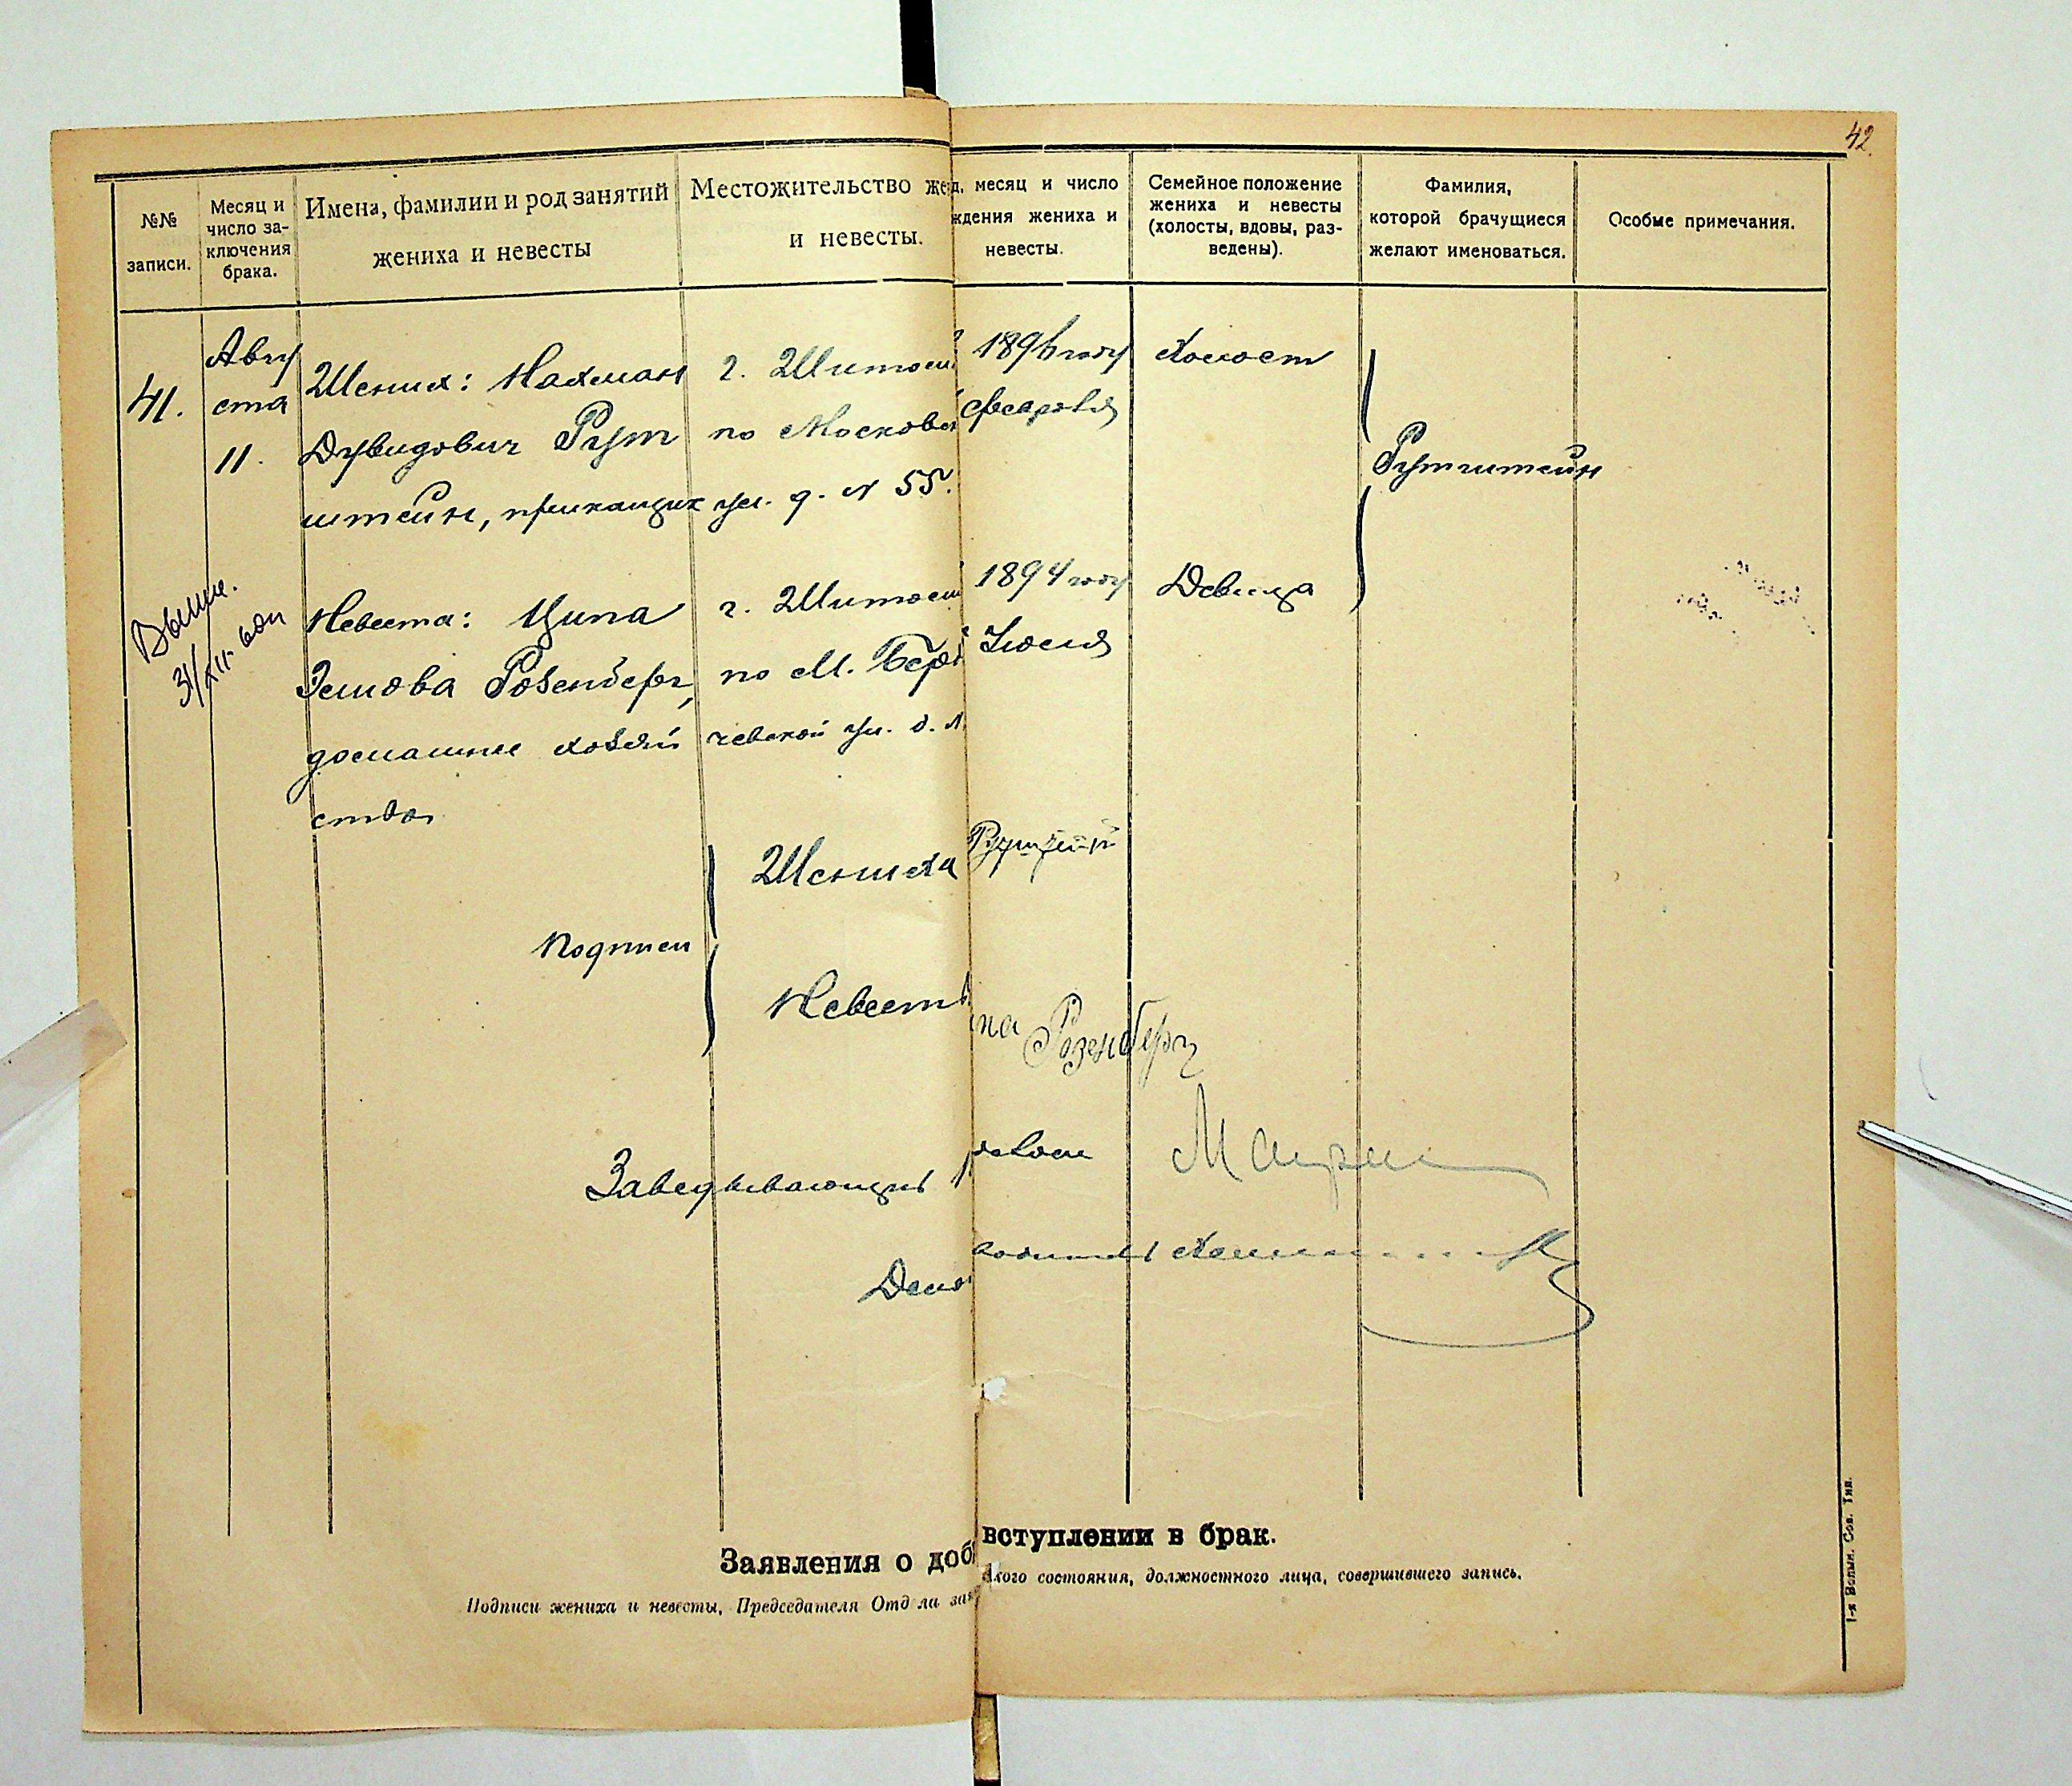 42.
№№ записи.
Месяц и число заключения брака.
Имена, фамилии и род занятий жениха и невесты
Местожительство же
и невесты.
д, месяц и число
ждения жениха и
невесты.
Семейное положение
жениха и невесты
(холосты, вдовы, раз-
ведены).
Фамилия,
которой брачущиеся
желают именоваться.
Особые примечания.
41.
Авгу
ста
11.
Жених: Нахман
Дувидович Рут
штейн, прикащик
г. Житом
по Москов
ул. д. № 55.
1896 году
февраля
Холост
Рутштейн
Невеста: Ципа
Зелмова Розенберг,
домашнее хозяй
ство
г. Житом
по М. Берди
чевской ул. д. №
1894 году
Июля
Девица
31/XII-60
Подписи
Жениха
Невесты
па Розенберг
Заведывающий
Дело
Заявления о доб
вступлении в брак.
Подписи жениха и невесты, Председателя Отд ла за
кого состояния, должностного лица, совершившего запись.
1-я Волын. Сов. Тип.